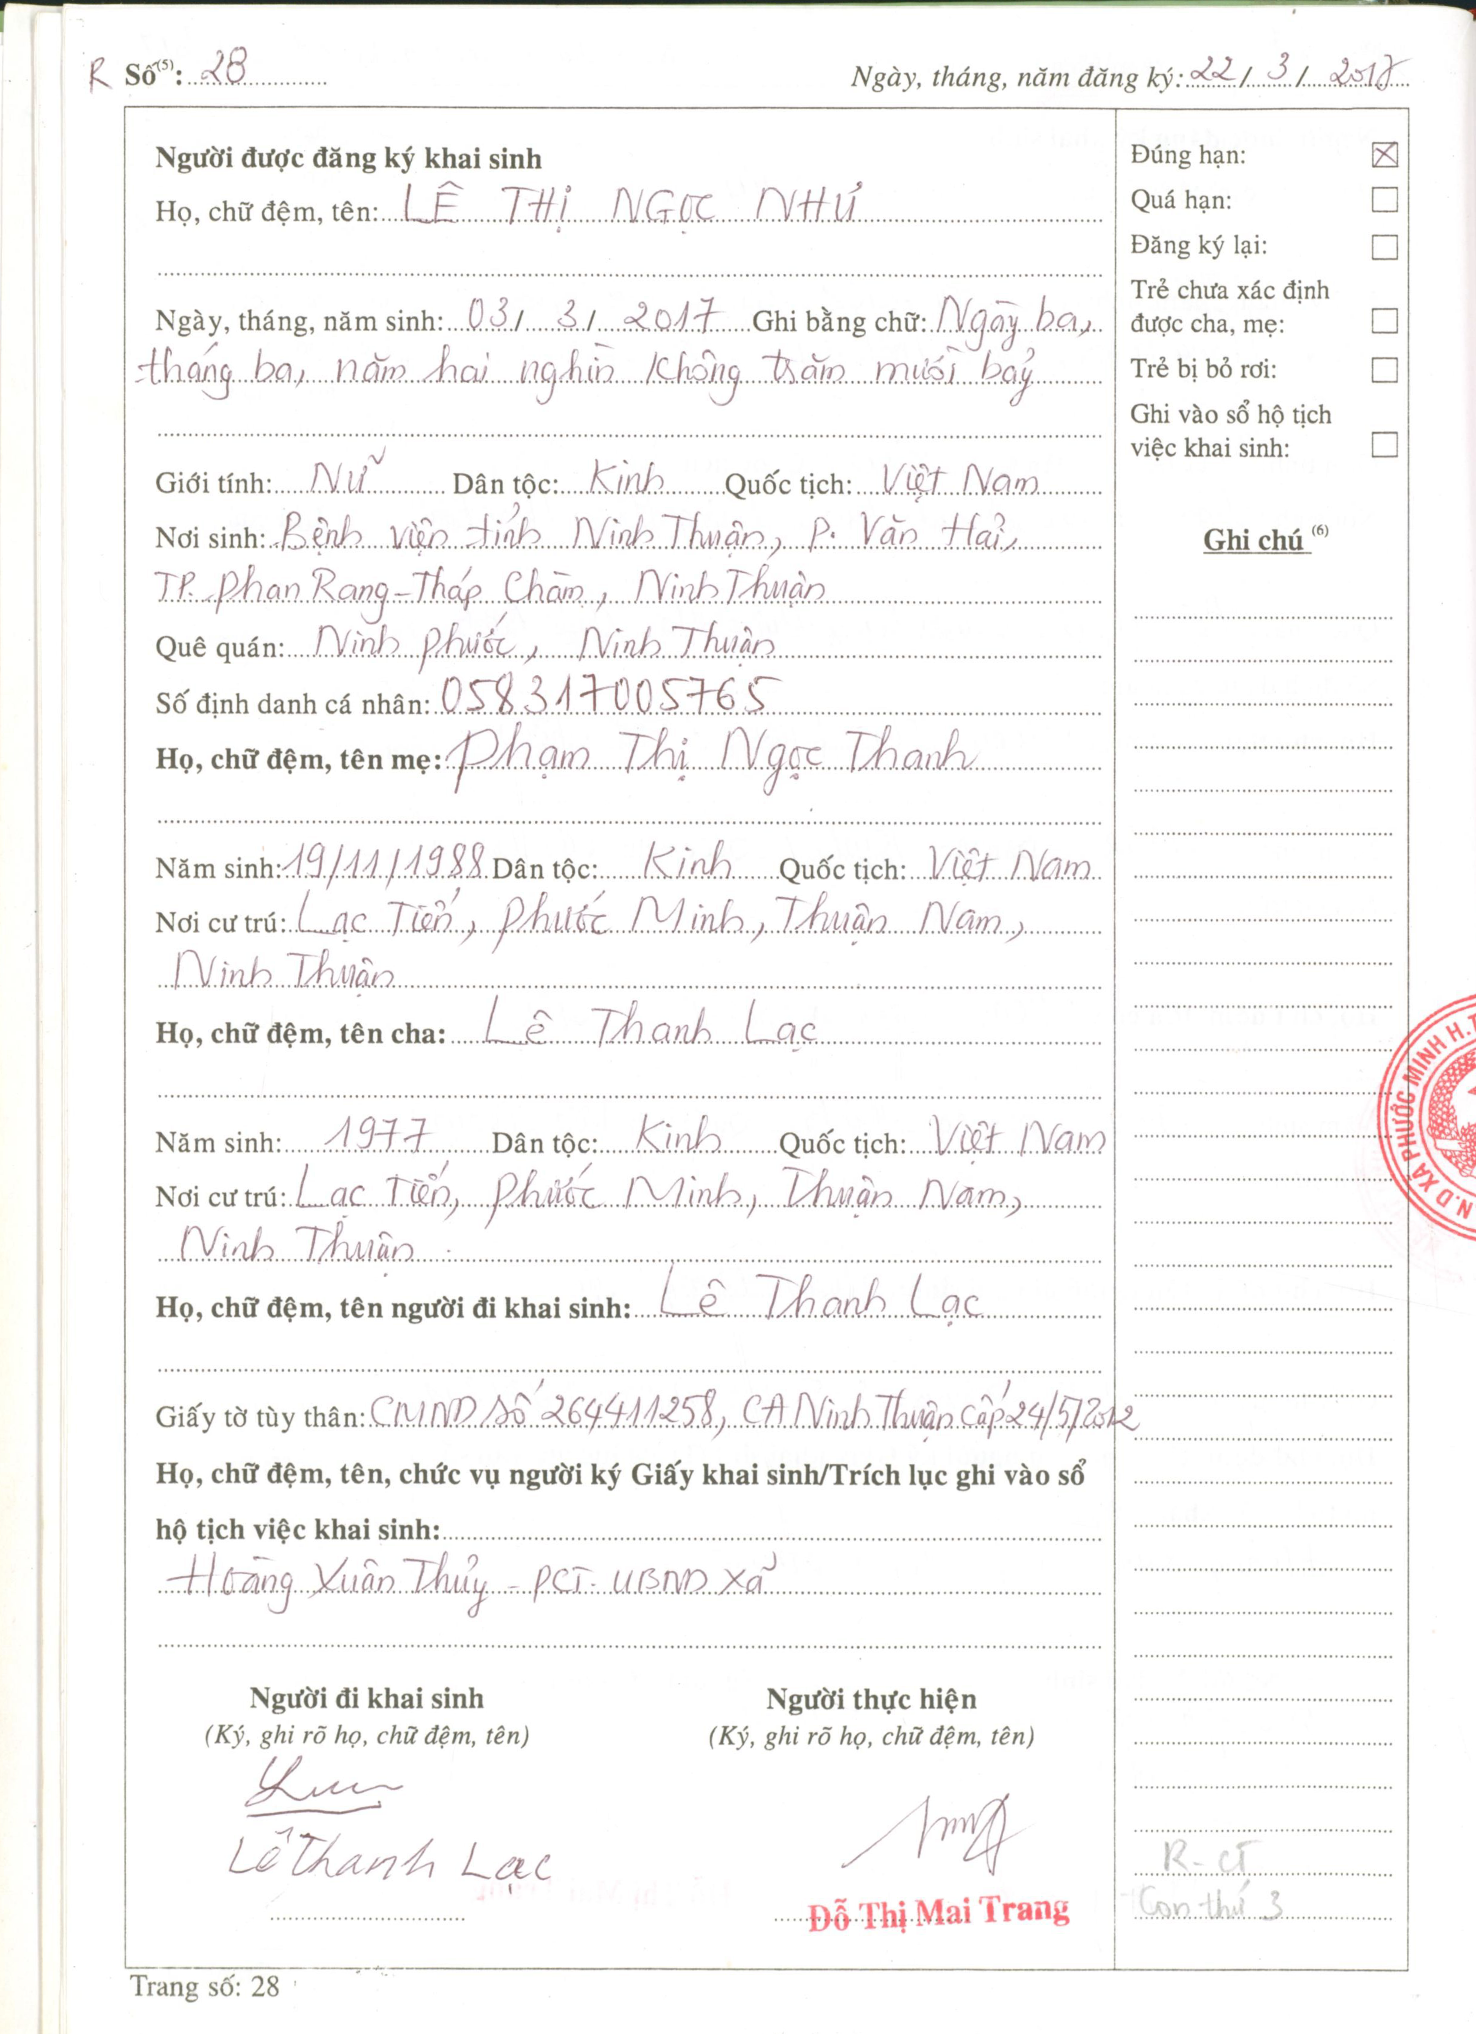 R Số(5): 28
Ngày, tháng, năm đăng ký: 22/ 3/ 2017
Người được đăng ký khai sinh
Họ, chữ đệm, tên: LÊ THỊ NGỌC NHƯ
Ngày, tháng, năm sinh: 03/ 3/ 2017 Ghi bằng chữ: Ngày ba,
tháng ba, năm hai nghìn không trăm mười bảy
Giới tính: Nữ Dân tộc: Kinh Quốc tịch: Việt Nam
Nơi sinh: Bệnh viện tỉnh Ninh Thuận, P. Văn Hải,
TP. Phan Rang-Tháp Chàm, Ninh Thuận
Quê quán: Ninh Phước, Ninh Thuận
Số định danh cá nhân: 058317005765
Họ, chữ đệm, tên mẹ: Phạm Thị Ngọc Thanh
Năm sinh: 19/11/1988 Dân tộc: Kinh Quốc tịch: Việt Nam
Nơi cư trú: Lạc Tiến, Phước Minh, Thuận Nam,
Ninh Thuận
Họ, chữ đệm, tên cha: Lê Thanh Lạc
Năm sinh: 1977 Dân tộc: Kinh Quốc tịch: Việt Nam
Nơi cư trú: Lạc Tiến, Phước Minh, Thuận Nam,
Ninh Thuận
Họ, chữ đệm, tên người đi khai sinh: Lê Thanh Lạc
Giấy tờ tùy thân: CMND số 264411258, CA Ninh Thuận cấp 24/5/2012
Họ, chữ đệm, tên, chức vụ người ký Giấy khai sinh/Trích lục ghi vào sổ
hộ tịch việc khai sinh:
Hoàng Xuân Thủy - PCT. UBND xã
Người đi khai sinh
(Ký, ghi rõ họ, chữ đệm, tên)
Lê Thanh Lạc
Người thực hiện
(Ký, ghi rõ họ, chữ đệm, tên)
Đỗ Thị Mai Trang
Đúng hạn: ☒
Quá hạn: ☐
Đăng ký lại: ☐
Trẻ chưa xác định
được cha, mẹ: ☐
Trẻ bị bỏ rơi: ☐
Ghi vào sổ hộ tịch
việc khai sinh: ☐
Ghi chú (6)
N.D XÃ PHƯỚC MINH H.T
R-CT
Con thứ 3
Trang số: 28